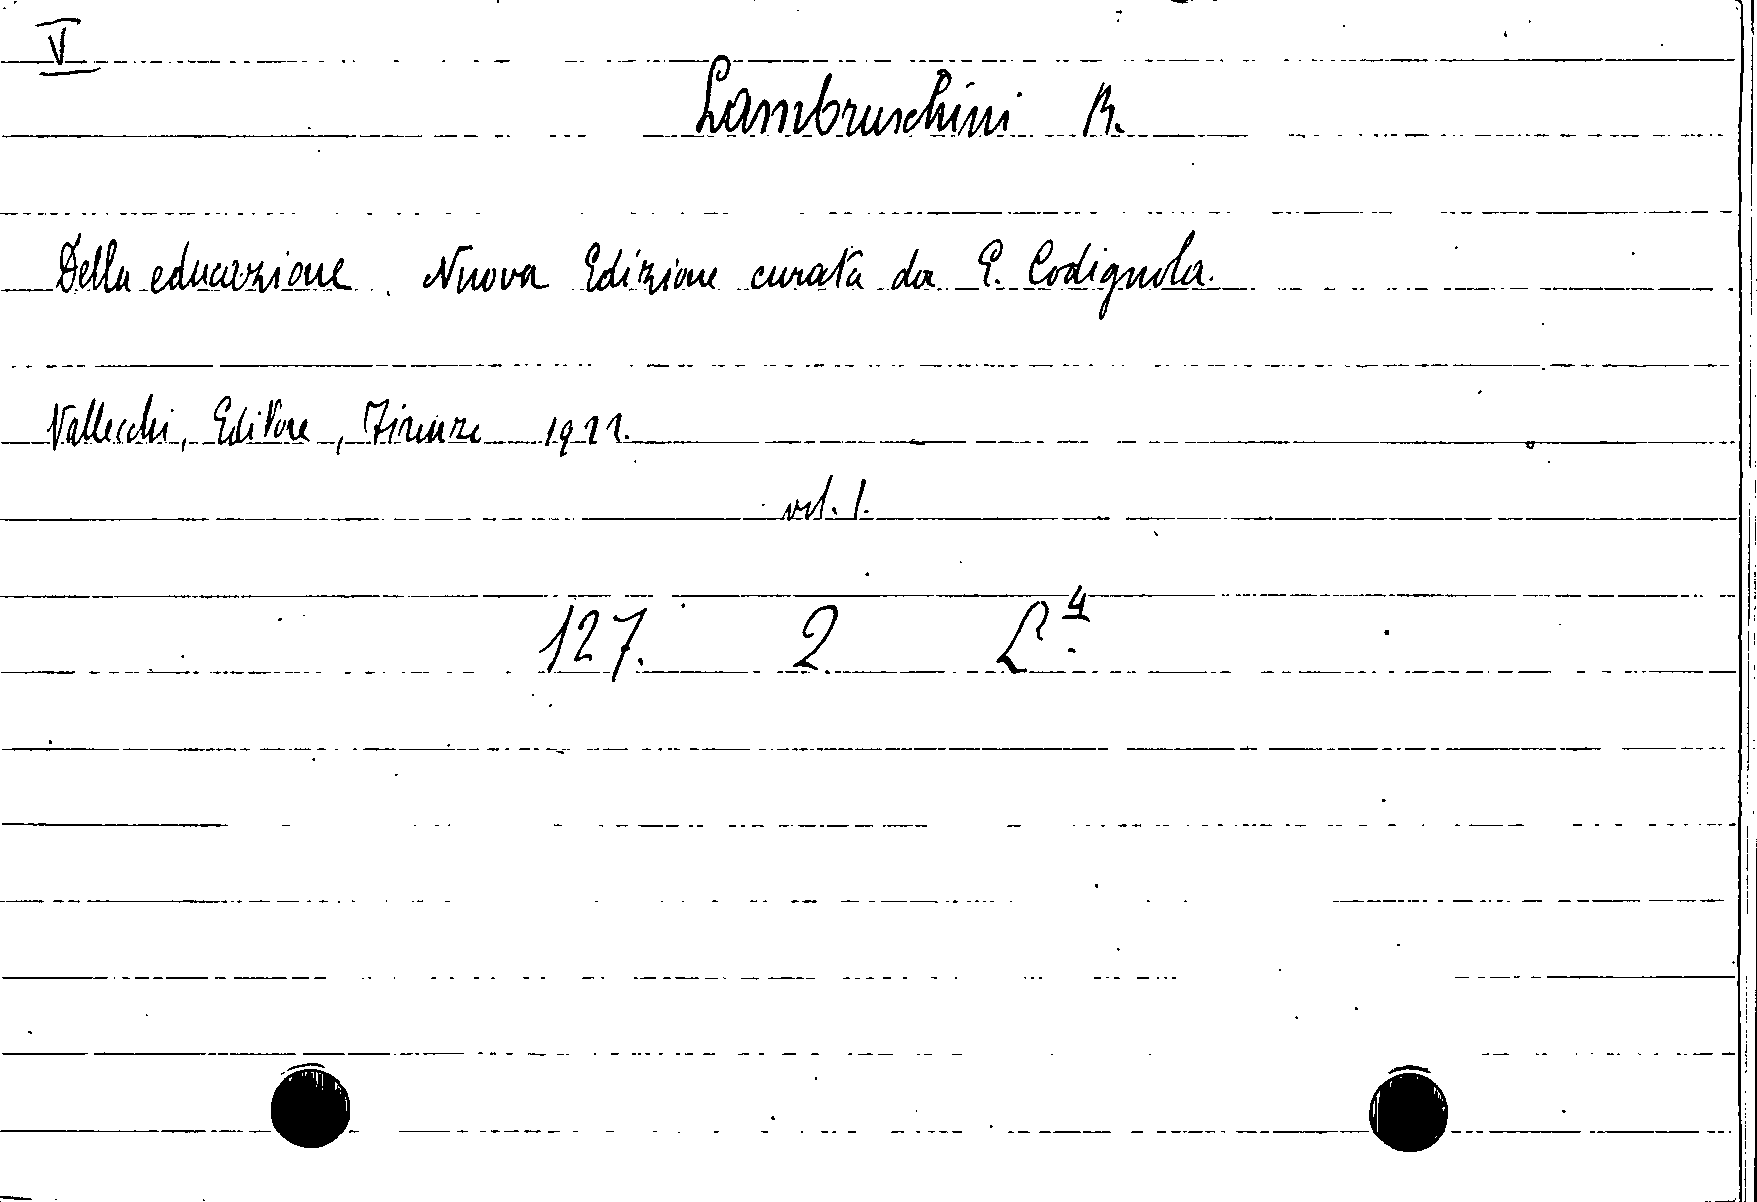 V
Lambruschini R.
Della educazione. Nuova Edizione curata da E. Codignola.
Vallecchi, Editore, Firenze 1922.
vol. 1.
127. 2 L⁴.